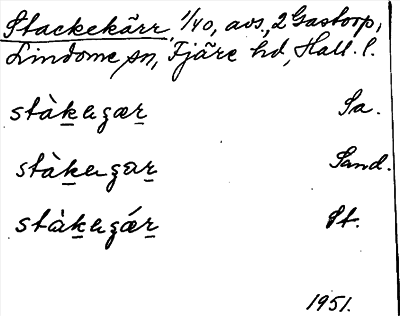 Stackekärr, 1/40, avs., 2 Gastorp,
Lindome sn, Fjäre hd, Hall. l.
stàkegær Sa.
stàkegær Sand.
stàkegǽr St.
1951.